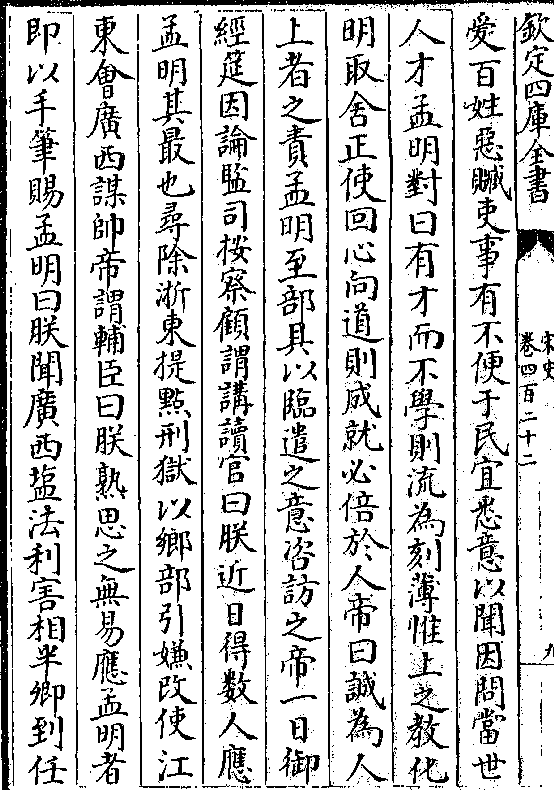 欽定四庫全書
宋史
卷四百二十二
九
愛百姓惡贓吏事有不便于民宜悉意以聞因問當世
人才孟明對曰有才而不學則流為刻薄惟上之教化
明取舍正使回心向道則成就必倍於人帝曰誠為人
上者之責孟明至部具以臨遣之意咨訪之帝一日御
經筵因論監司按察顧謂講讀官曰朕近日得數人應
孟明其最也尋除浙東提點刑獄以鄉部引嫌改使江
東會廣西謀帥帝謂輔臣曰朕熟思之無易應孟明者
即以手筆賜孟明曰朕聞廣西塩法利害相半卿到任